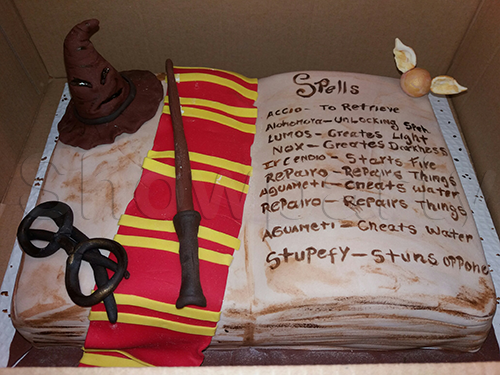 Spells
ACCIO - To Retrieve
Alohemora - UNLOCKING
LUMOS - Greates Light
NOX - Greates Darkness
INCENDIO - Starts Fire
Repairo - Repairs Things
AGUAMETI - Cheats Water
Repairo - Repairs Things
AGUAMETI - Cheats Water
Stupefy - Stuns oppone